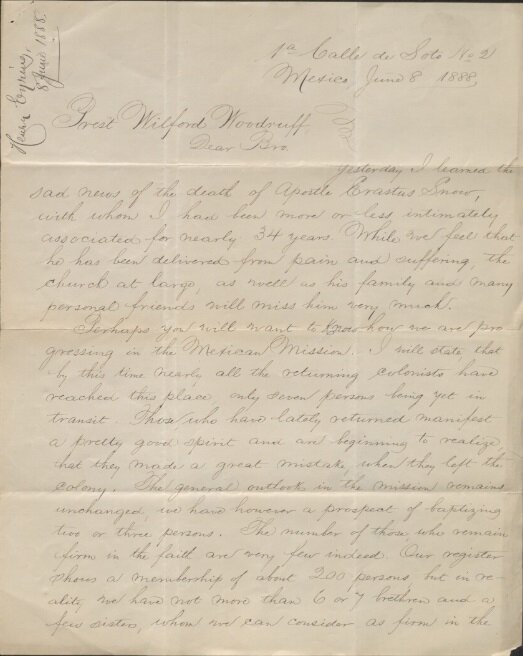 Henry Eyring,
8 June 1888.
1a Calle de Soto No 2
Mexico June 8 1888
Prest Wilford Woodruff,
Dear Bro.
Yesterday I learned the
sad news of the death of Apostle Erastus Snow,
with whom I had been more or less intimately
associated for nearly 34 years. While we feel that
he has been delivered from pain and suffering, the
church at large, as well as his family and many
personal friends will miss him very much.
Perhaps you will want to know how we are pro
gressing in the Mexican Mission. I will state, that
by this time nearly all the returning colonists have
reached this place, only seven persons being yet in
transit. Those who have lately returned manifest
a pretty good spirit and are beginning to realize
that they made a great mistake, when they left the
colony. The general outlook in the mission remains
unchanged, we have however a prospect of baptizing
two or three persons. The number of those who remain
firm in the faith are very few indeed. Our register
shows a membership of about 200 persons, but in re-
ality we have not more than 6 or 7 brethren and a
few sisters, whom we can consider as firm in the